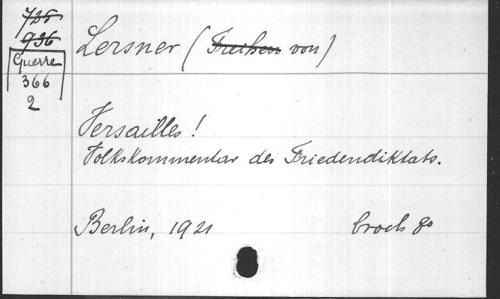 728
936
Guerre
366
2
Lersner (Freiherr von)
Versailles!
Volkskommentar des Friedendiktats.
Berlin, 1921 broch 8o